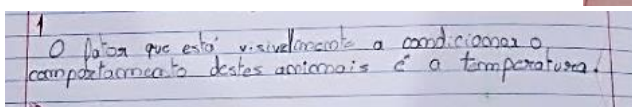 1
O fator que está visivelmente a condicionar o
comportamento destes animais é a temperatura.